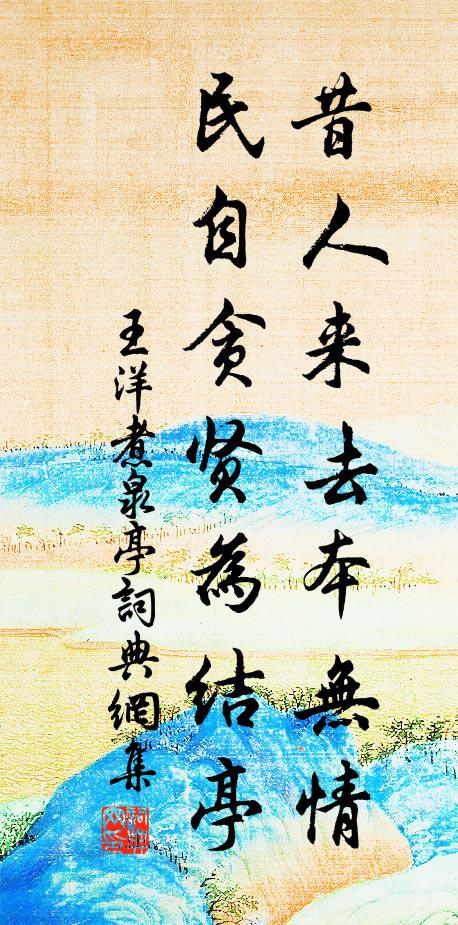 昔人来去本無情
民自贪贤為结亭
王洋煮泉亭詞典網集